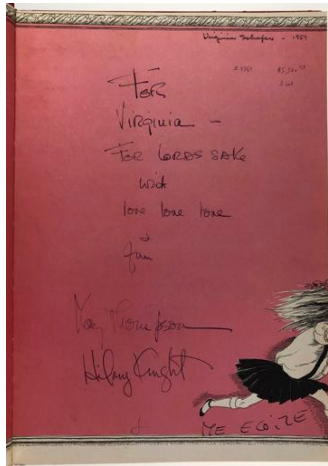 Virginia Schafer - 1959
FOR
Virginia -
FOR LORDS SAKE
with
love love love
&
fun
Kay Thompson
Hilary Knight
&
ME ELOIZE